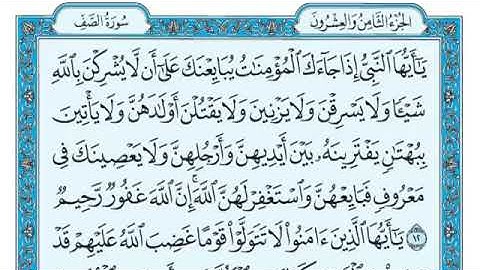 الجُزْءُ الثَّامِنُ وَالعِشْرُونَ
سُورَةُ الصَّفِّ
يَٰٓأَيُّهَا ٱلنَّبِيُّ إِذَا جَآءَكَ ٱلْمُؤْمِنَٰتُ يُبَايِعْنَكَ عَلَىٰٓ أَن لَّا يُشْرِكْنَ بِٱللَّهِ
شَيْـًٔا وَلَا يَسْرِقْنَ وَلَا يَزْنِينَ وَلَا يَقْتُلْنَ أَوْلَٰدَهُنَّ وَلَا يَأْتِينَ
بِبُهْتَٰنٍ يَفْتَرِينَهُۥ بَيْنَ أَيْدِيهِنَّ وَأَرْجُلِهِنَّ وَلَا يَعْصِينَكَ فِى
مَعْرُوفٍ فَبَايِعْهُنَّ وَٱسْتَغْفِرْ لَهُنَّ ٱللَّهَ إِنَّ ٱللَّهَ غَفُورٌ رَّحِيمٌ
١٢ يَٰٓأَيُّهَا ٱلَّذِينَ ءَامَنُوا۟ لَا تَتَوَلَّوْا۟ قَوْمًا غَضِبَ ٱللَّهُ عَلَيْهِمْ قَدْ